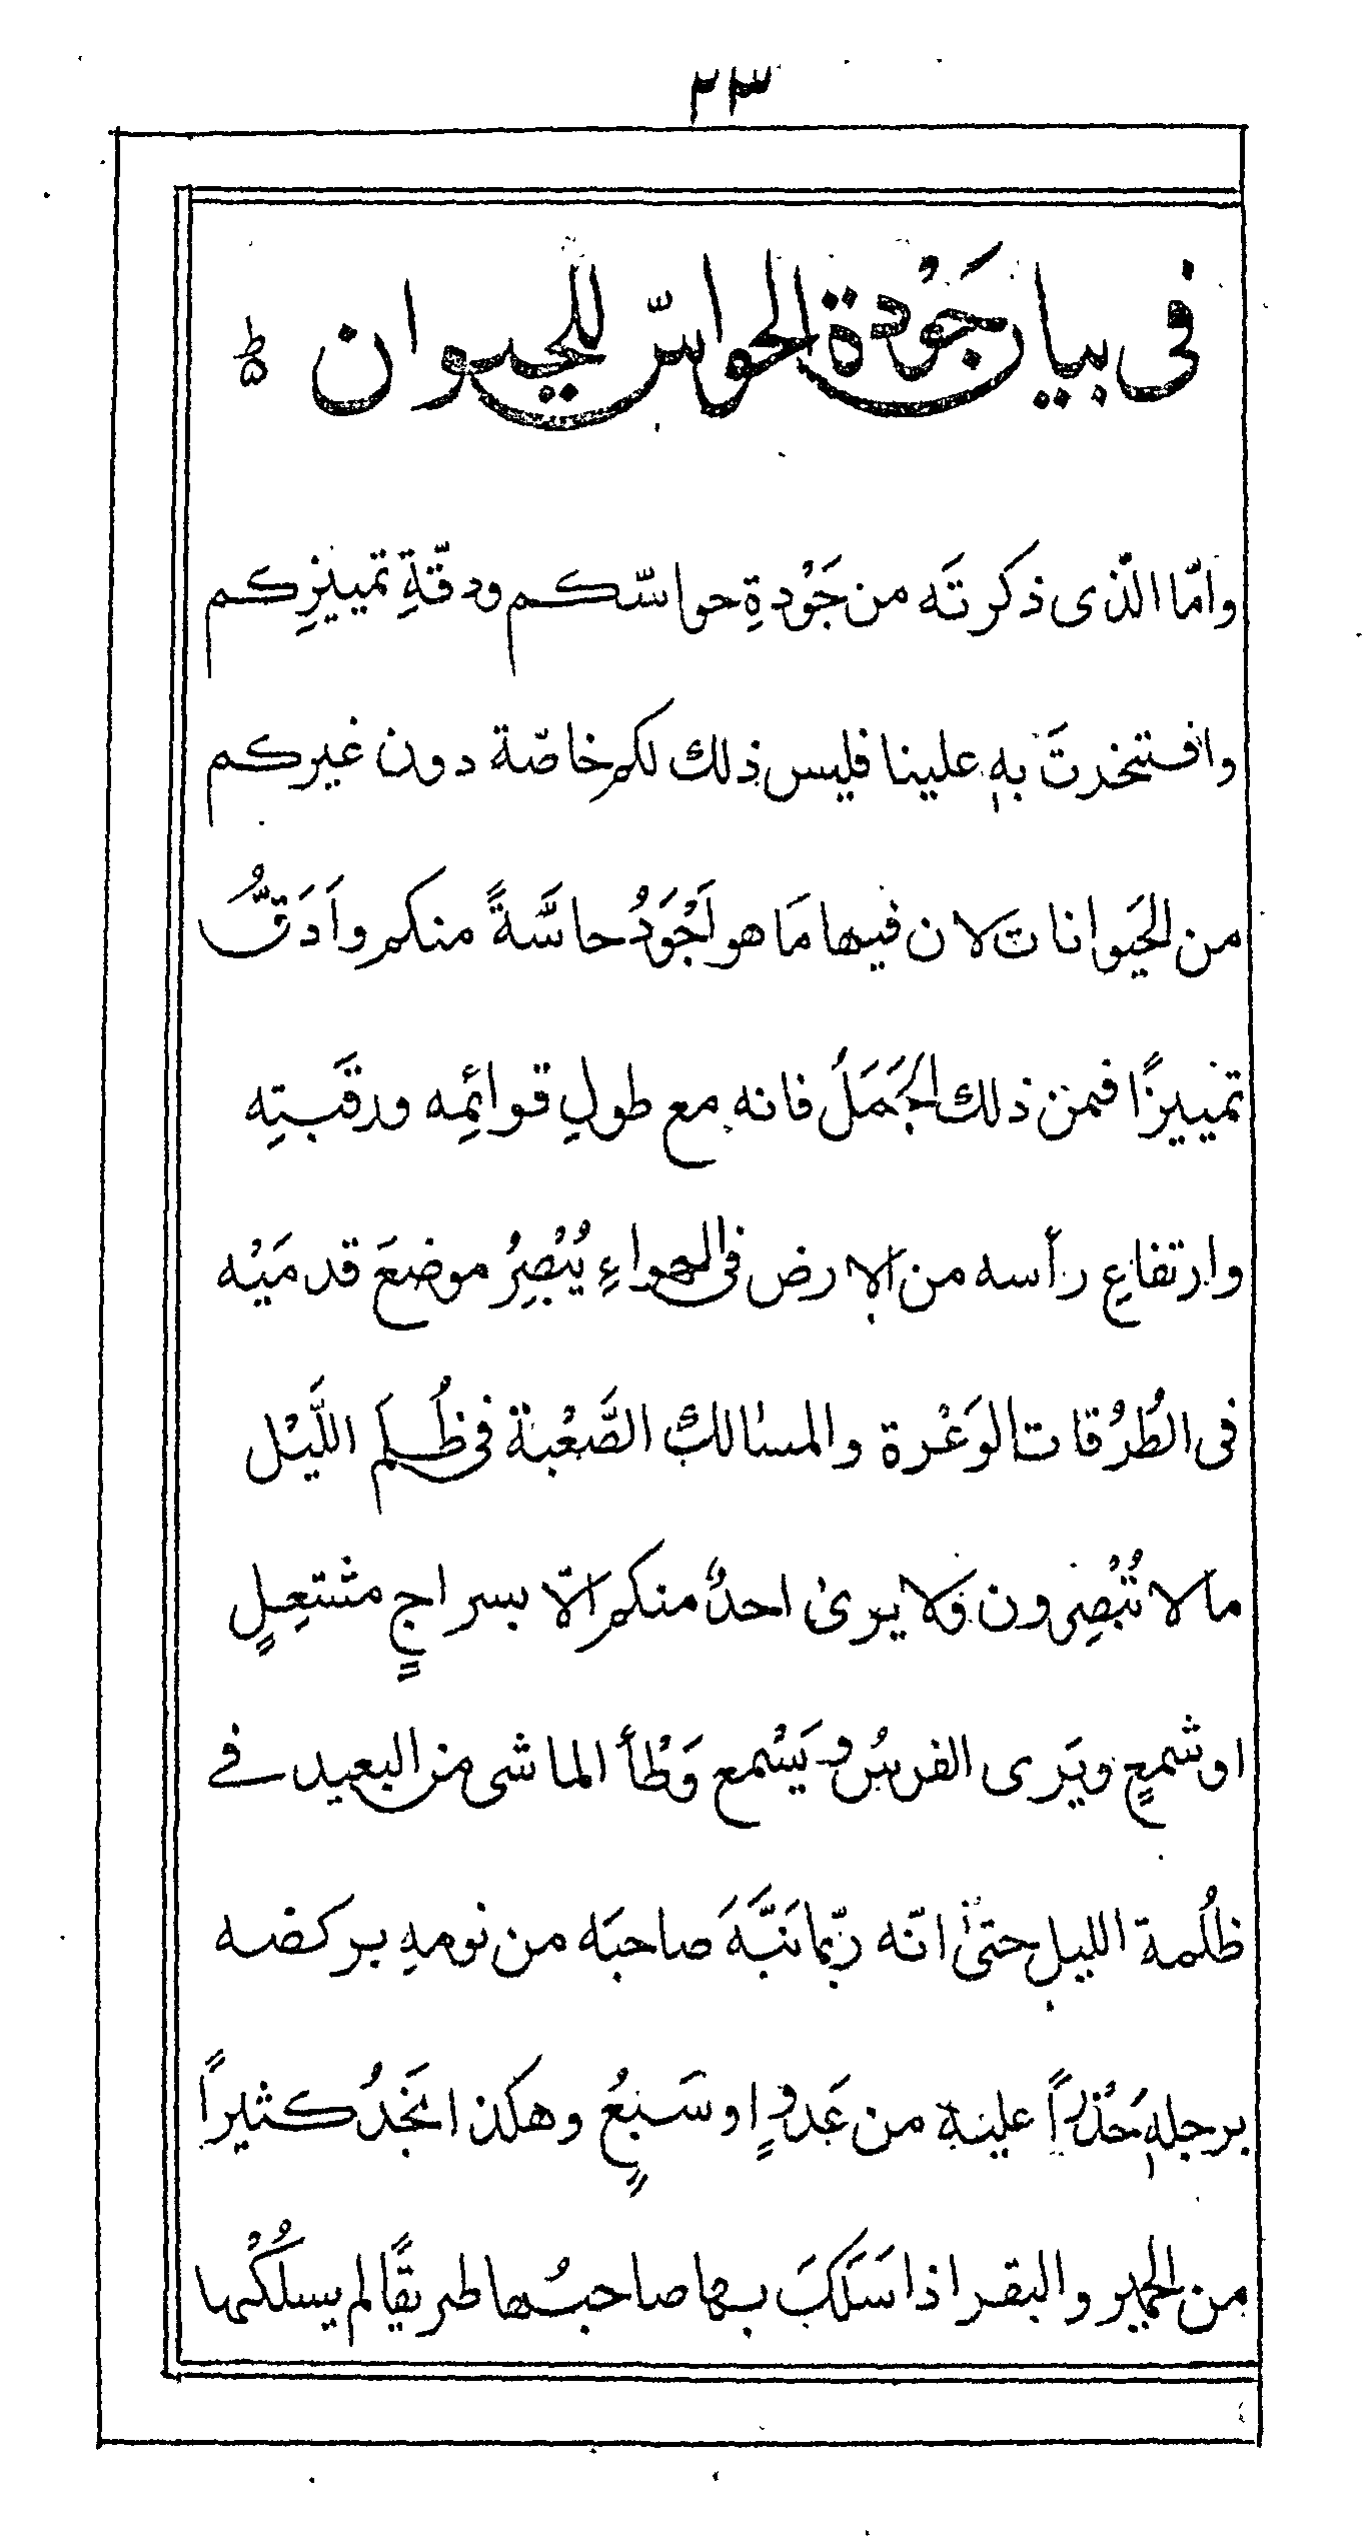 ٢٣
فى بيان جَوْدة الحواسّ للحيوان
وامّا الّذى ذكرتَه من جَوْدةِ حواسّكم ودقّةِ تمييزِكم
وافتخرتَ بهٖ علينا فليس ذلك لكم خاصّة دون غيركم
من الحَيوانات لان فيها مَا هو اَجْوَدُ حاسَّةً منكم واَدَقُّ
تمييزًا فمن ذلك الجَمَلُ فانه مع طولِ قوائمِه ورقَبتِه
وارتفاعِ رأسه من الارض فى الهواءِ يُبْصِرُ موضعَ قدمَيْه
فى الطُرُقات الوَعْرة والمسالك الصَّعْبة فى ظُلَمِ اللَّيْل
مالا تُبْصِرون ولا يرىٰ احدٌ منكم الّا بسراجٍ مشتعِلٍ
او شمعٍ ويَرى الفرسُ ويَسْمع وَطْأَ الماشى من البعيد فے
ظُلمة الليل حتىٰ انّه ربّما نَبَّهَ صاحبَه من نومهِ بركضه
برجلهٖ حَذَراً علية من عَدوٍ او سَبعٍ وهكذا نَجدُ كثيراً
من الحمير والبقر اذا سَلَكَ بها صاحبُها طريقًا لم يسلُكْها